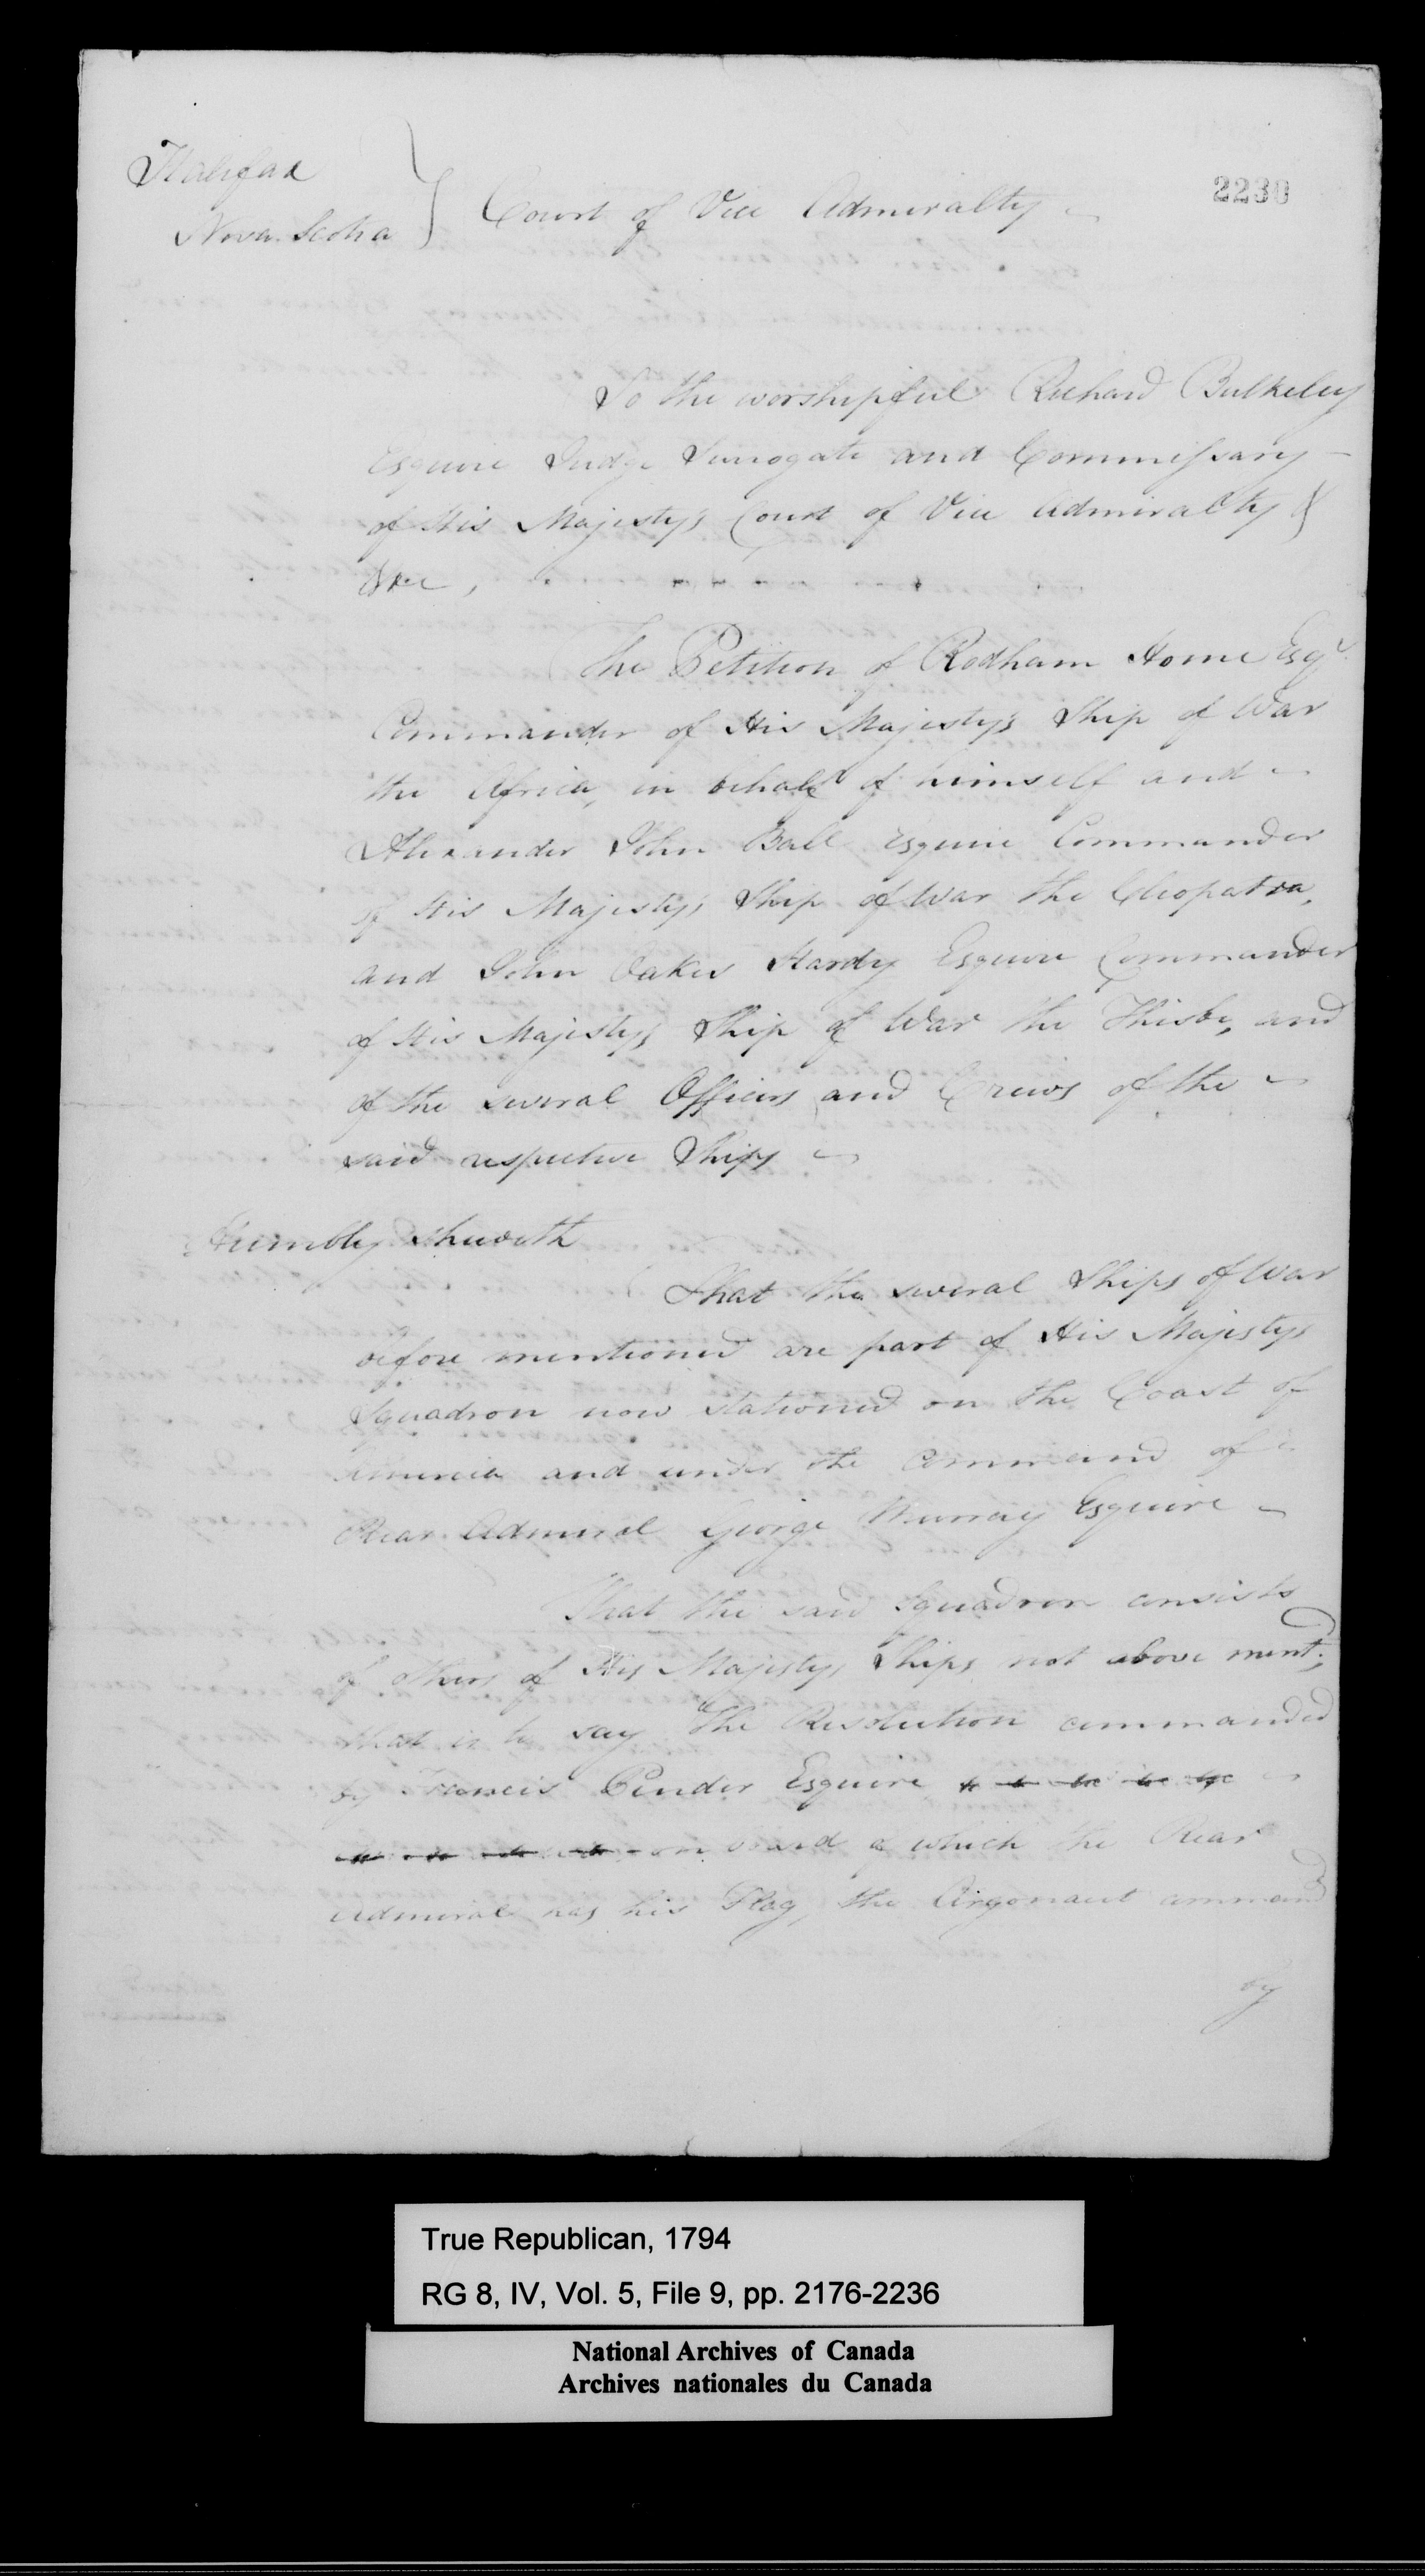 2230
Halifax
Nova Scotia } Court of Vice Admiralty
To the worshipful Richard Bulkeley
Esquire Judge Surrogate and Commissary
of His Majesty's Court of Vice Admiralty &
&c &c,
The Petition of Rodham Home Esqr
Commander of His Majesty's Ship of War
the Africa, in behalf of himself and
Alexander John Ball Esquire Commander
of His Majesty's Ship of War the Cleopatra,
and John Oakes Hardy Esquire Commander
of His Majesty's Ship of War the Thisbe, and
of the several Officers and Crews of the
said respective Ships
Humbly Sheweth
That the several Ships of War
before mentioned are part of His Majesty's
Squadron now stationed on the Coast of
America and under the command of
Rear Admiral George Murray Esquire
That the said Squadron consists
of others of His Majesty's Ships not above ment.
that is to say The Resolution commanded
by Francis Pender Esquire
on board of which the Rear
Admiral has his Flag, the Argonaut command
by
True Republican, 1794
RG 8, IV, Vol. 5, File 9, pp. 2176-2236
National Archives of Canada
Archives nationales du Canada